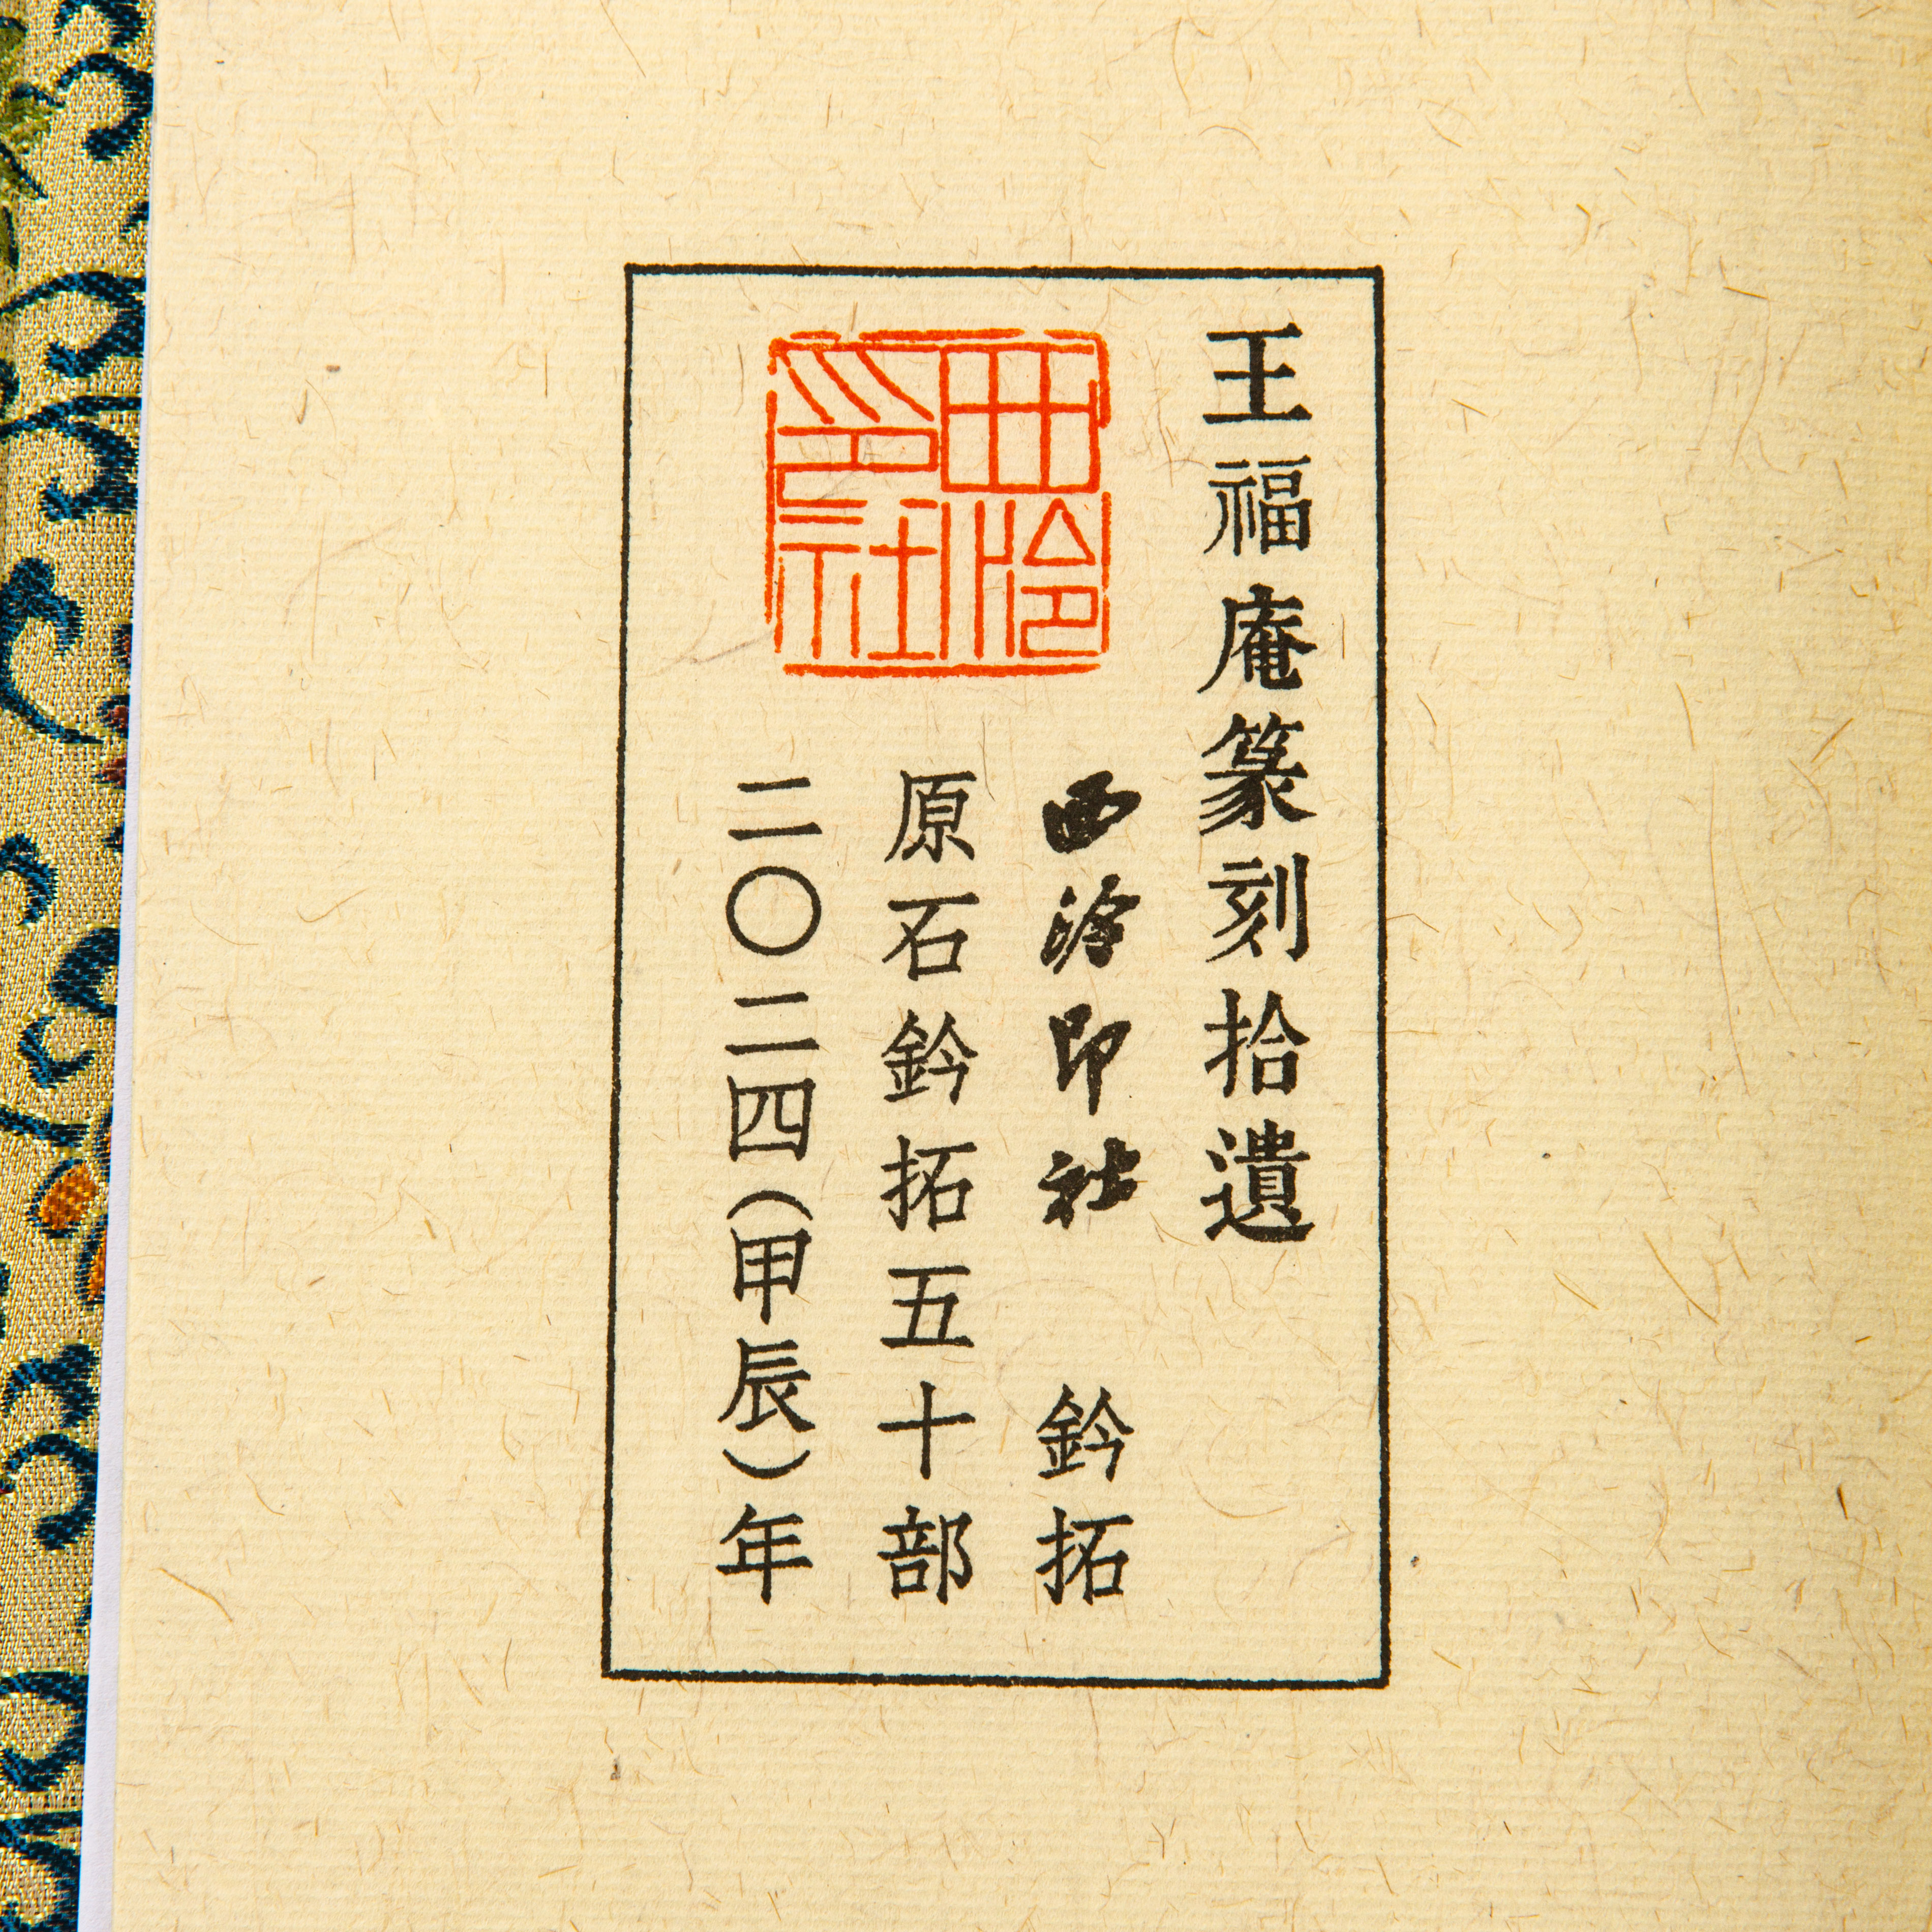 王福庵篆刻拾遺
西泠印社 鈐拓
原石鈐拓五十部
二〇二四(甲辰)年
西泠印社